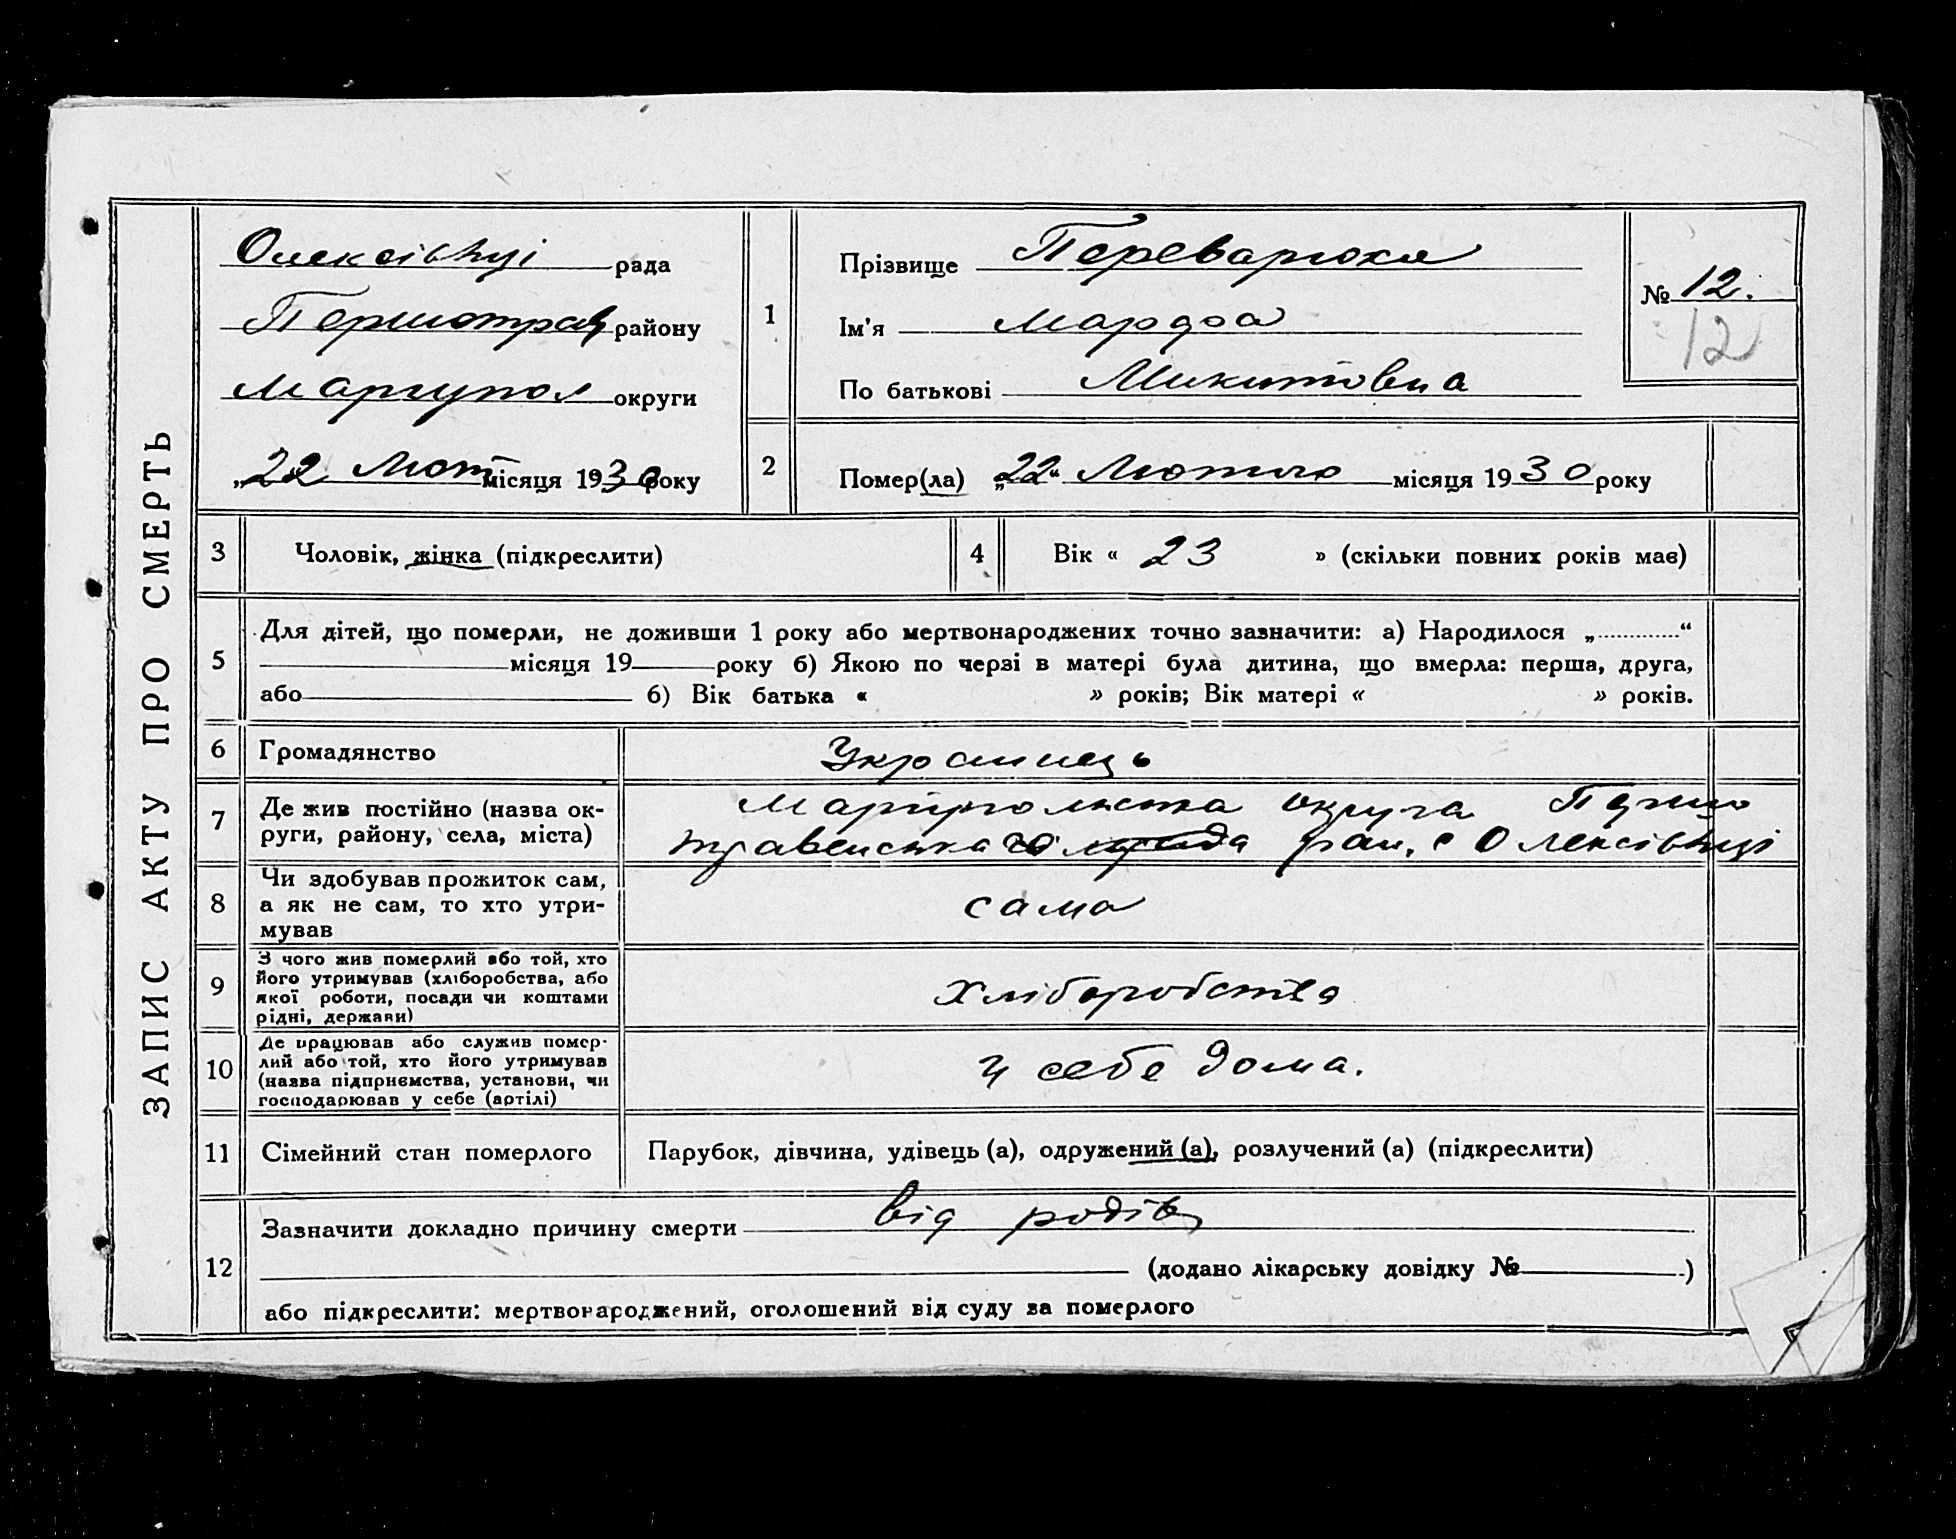 ЗАПИС АКТУ ПРО СМЕРТЬ
Олексівці рада
Першотрав району
Маріупол округи
„22 Лют місяця 1930 року
1
Прізвище Переварюха
Ім'я Марфа
По батькові Микитовна
№ 12.
12
2
Помер(ла) „22“ Лютого місяця 1930 року
3
Чоловік, жінка (підкреслити)
4
Вік « 23 » (скільки повних років має)
5
Для дітей, що померли, не доживши 1 року або мертвонароджених точно зазначити: а) Народилося „............“
місяця 19 року б) Якою по черзі в матері була дитина, що вмерла: перша, друга,
або б) Вік батька « » років; Вік матері « » років.
6
Громадянство
Украинець
7
Де жив постійно (назва ок-
руги, району, села, міста)
Маріупольська округа Першо
травенська рай. с Олексівці
8
Чи здобував прожиток сам,
а як не сам, то хто утри-
мував
сама
9
З чого жив померлий або той, хто
його утримував (хліборобства, або
якої роботи, посади чи коштами
рідні, держави)
Хліборобства
10
Де працював або служив помер-
лий або той, хто його утримував
(назва підприємства, установи, чи
господарював у себе (артілі)
У себе дома.
11
Сімейний стан померлого
Парубок, дівчина, удівець (а), одружений (а), розлучений (а) (підкреслити)
12
Зазначити докладно причину смерти від родів
(додано лікарську довідку № )
або підкреслити: мертвонароджений, оголошений від суду за померлого